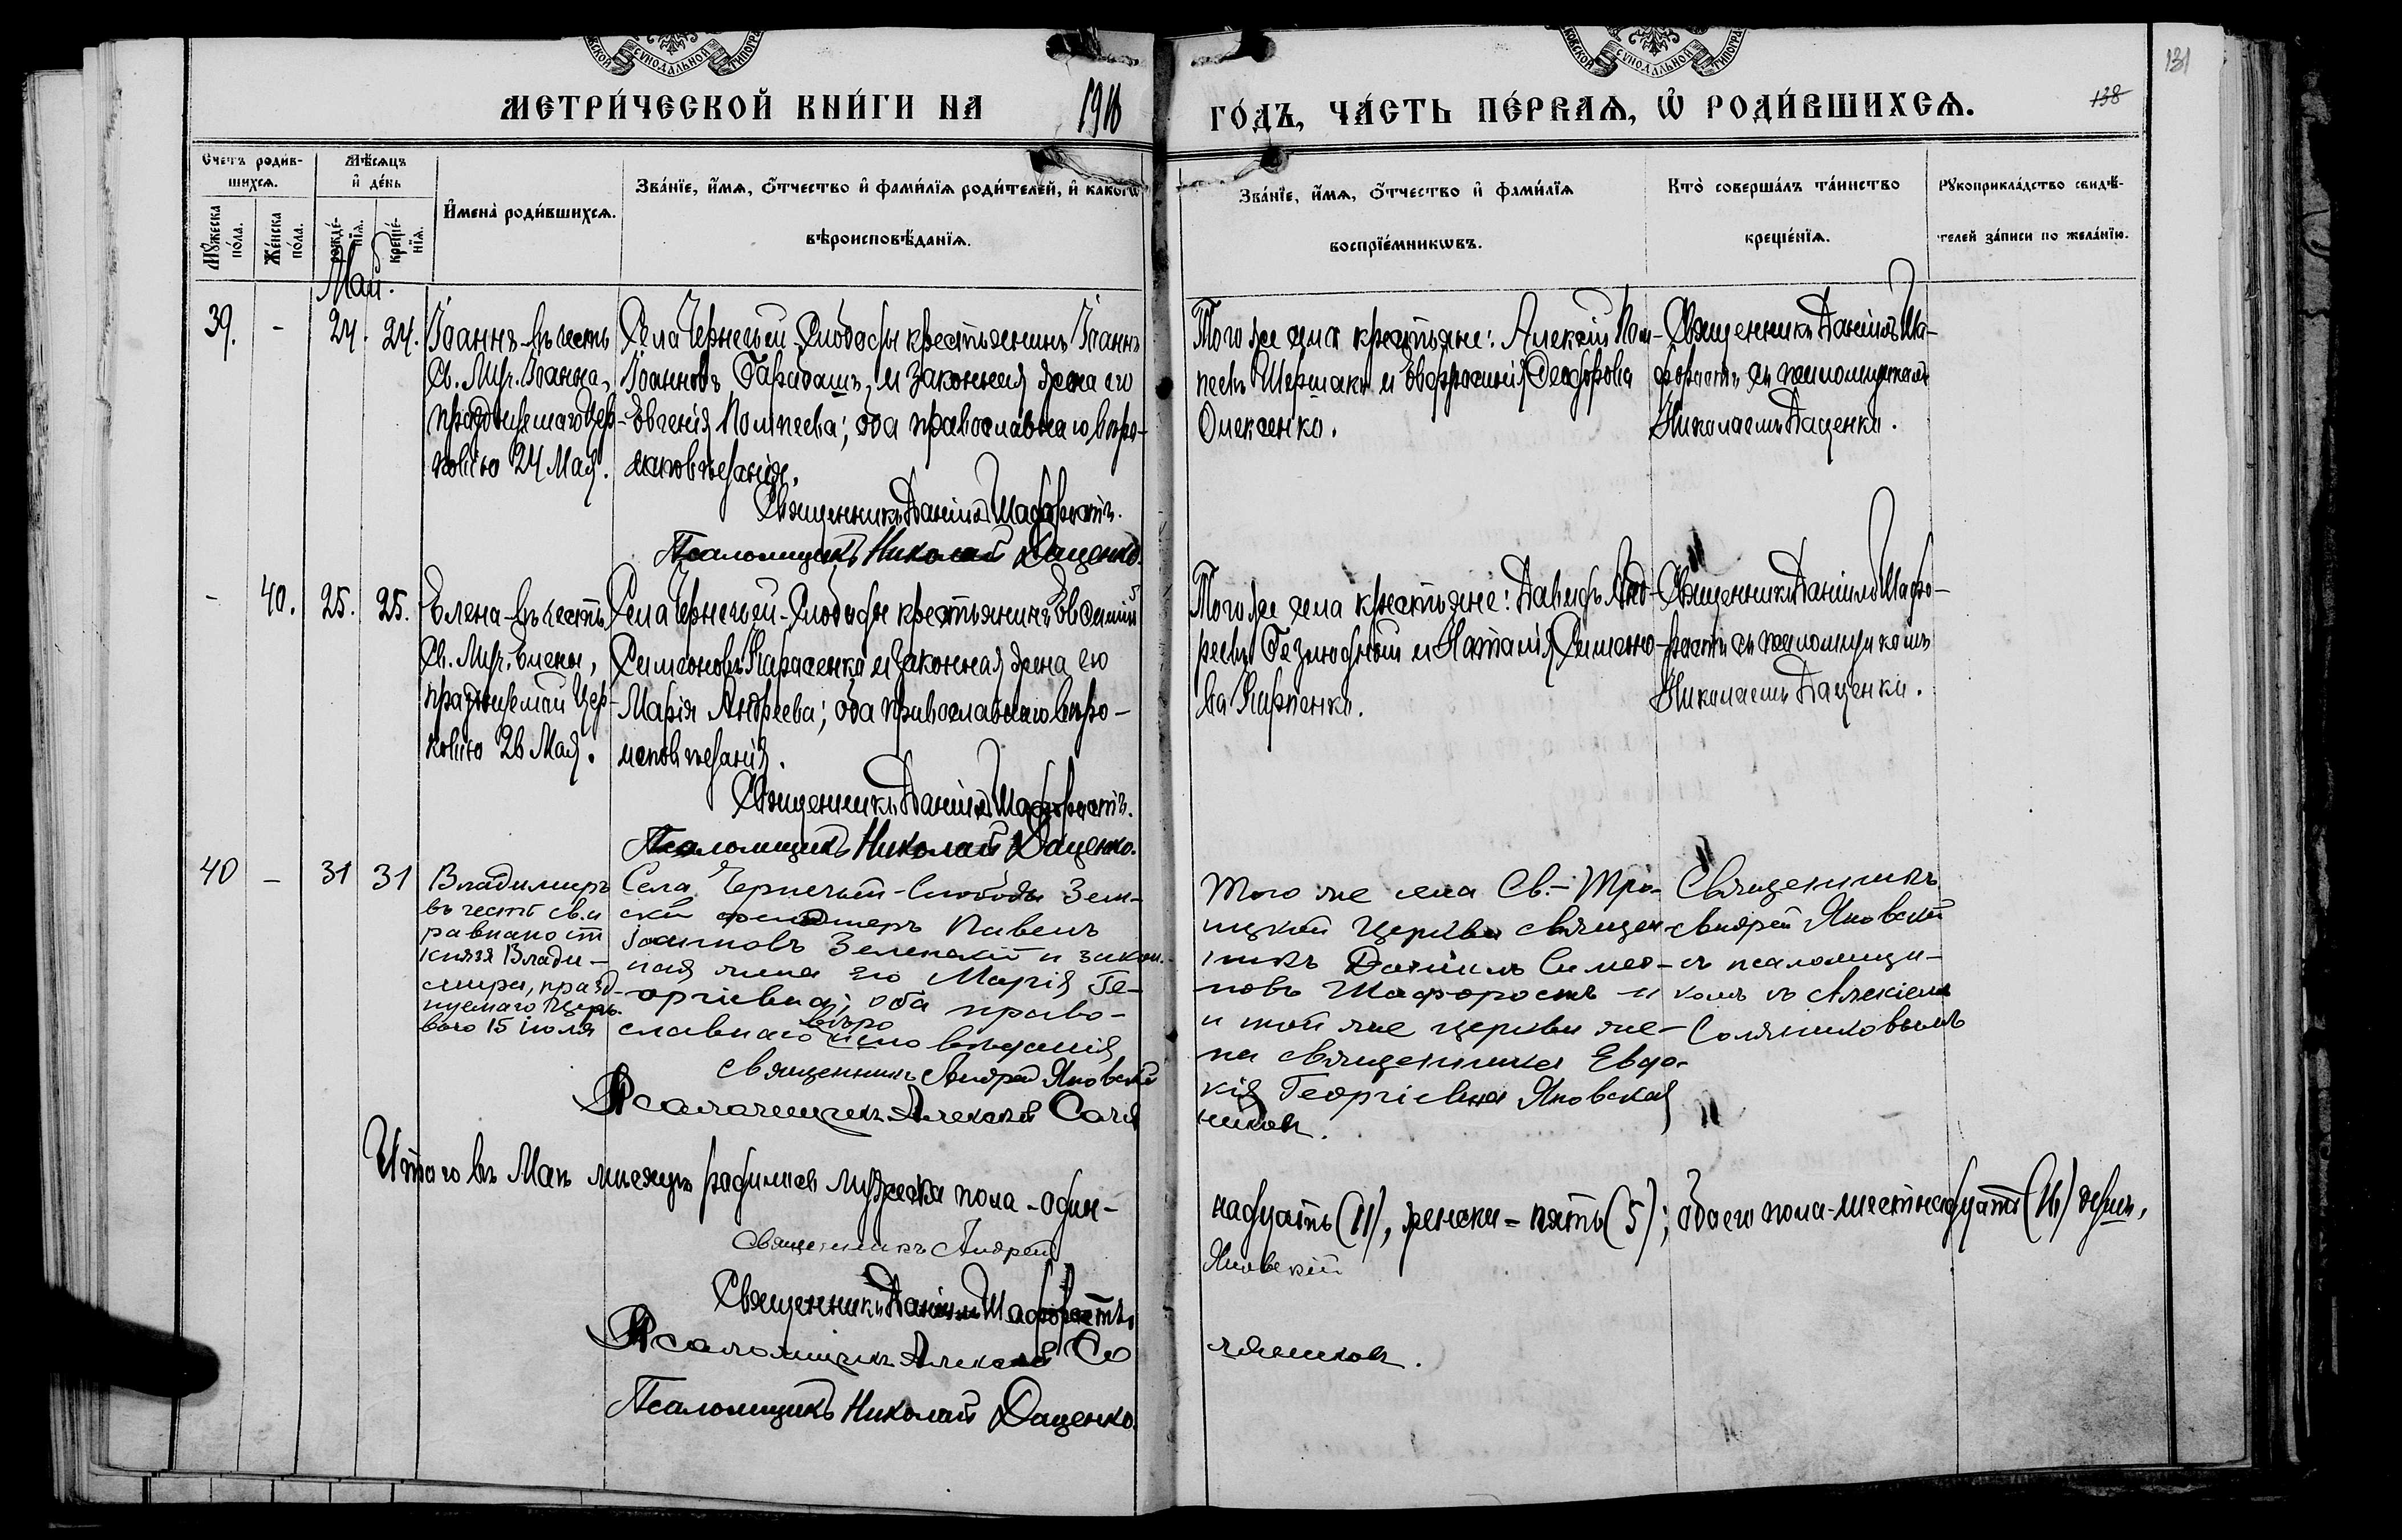 СУНОДАЛЬНОЙ
СУНОДАЛЬНОЙ
131
МЕТРИ́ЧЕСКОЙ КНИ́ГИ НА 1916 ГО́ДЪ, ЧА́СТЬ ПЕ́РВАѦ, Ѡ҆ РОДИ́ВШИХСѦ.
138
Счетъ роди́в-
шихсѧ.
Мꙋжеска по́ла.
Же́нска по́ла.
Мѣ́сѧцъ
и҆ де́нь
рожде́-
нїѧ.
креще́-
нїѧ.
И҆мена̀ роди́вшихсѧ.
Зва́нїе, и҆́мѧ, ѻ҆́тчество и҆ фамѝлїѧ роди́телей, и҆ како́гѡ
вѣроисповѣ́данїѧ.
Зва́нїе, и҆́мѧ, ѻ҆́тчество и҆ фамѝлїѧ
воспрїе́мникѡвъ.
Кто̀ соверша́лъ та́инство
креще́нїѧ.
Рꙋкоприкла́дство свидѣ́-
телей за́писи по жела́нїю.
Май.
39.
-
24.
24.
Іоаннъ въ честь
Св. Муч. Іоанна,
празднуемаго Цер-
ковію 24 Мая.
Села Чернечьей-Слободы крестьянинъ Іоаннъ
Іоанновъ Барабашъ, и законная жена его
Евгенія Помпеева; оба православнаго веро-
исповѣданія.
Священникъ Даніилъ Шафоростъ.
Псаломщикъ Николай Даценко.
Того же села крестьяне: Алексій Пом-
пеевъ Шершакъ и Евфросинія Феодорова
Олексенко.
Священникъ Даніилъ Ша-
форостъ съ псаломщикомъ
Николаемъ Даценко.
-
40.
25.
25.
Елена-въ честь
Св. Муч. Елены,
празднуемой Цер-
ковію 26 Мая.
Села Чернечьей-Слободы крестьянинъ Евфимій
Симеоновъ Карасенко и законная жена его
Марія Андреева; оба православнаго веро-
исповѣданія.
Священникъ Даніилъ Шафоростъ.
Псаломщикъ Николай Даценко.
Того же села крестьяне: Давидъ Анд-
реевъ Безлюдный и Наталія Симеоно-
ва Карпенко.
Священникъ Даніилъ Шафо-
ростъ съ псаломщикомъ
Николаемъ Даценко.
40
-
31
31
Владимиръ
въ честь св. и
равноапост
князя Влади-
мира, празд-
нуемаго Церк.
вою 15 іюля
Села Чернечьей-Слободы Зем-
скій фельдшеръ Павелъ
Іоанновъ Зеленскій и закон-
ная жена его Марія Ге-
оргіевна; оба право-
славнаго вѣро исповѣданія
Священникъ Андрей Яновскій
Псаломщикъ Алексѣй Соля
никовъ.
Того же села Св.-Тро-
ицкой Церкви Священ-
никъ Даніилъ Симео-
новъ Шафоростъ и
и той же церкви же-
на священника Евдо-
кія Георгіевна Яновская
Священникъ
Андрей Яновскій
съ псаломщи-
комъ Алексіемъ
Соляниковымъ
Итого въ Маѣ месяце родилось мужеска пола - один-
надцать (11), женска - пять (5); обоего пола - шестнадцать (16) душъ.
Священникъ Андрей Яновскій
Священникъ Даніилъ Шафоростъ.
Псаломщикъ Алексѣй Со ляниковъ.
Псаломщикъ Николай Даценко.